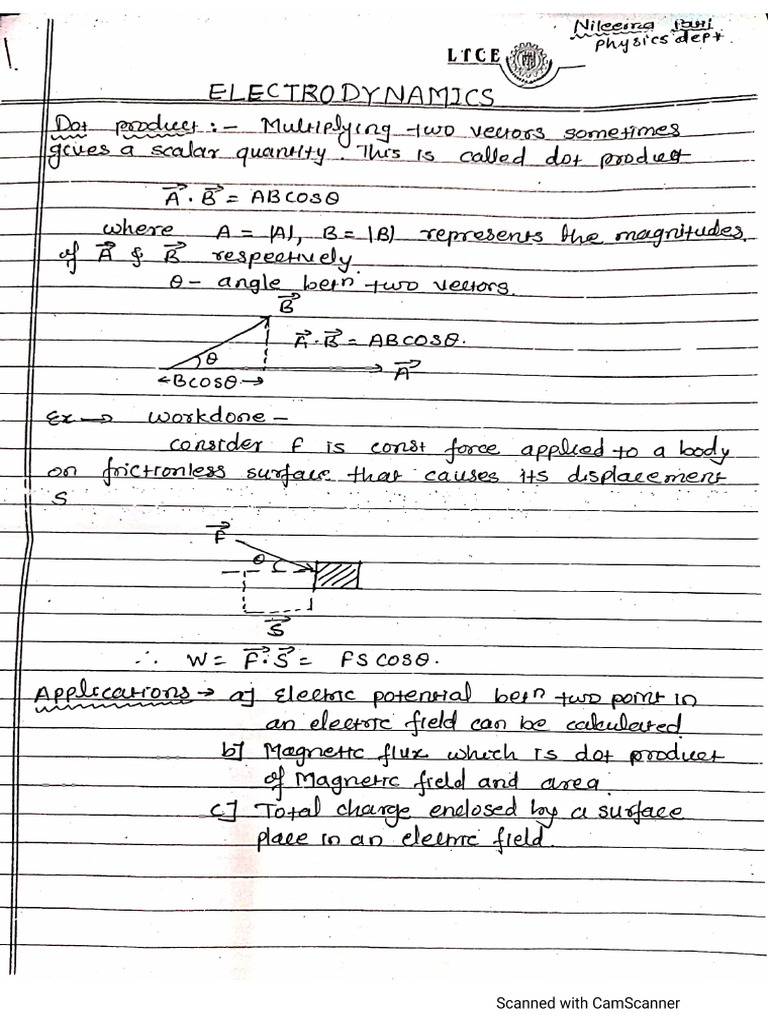 Nileema Pari
Physics dept.
1.
LTCE
ELECTRODYNAMICS
Dot product :- Multiplying two vectors sometimes
gives a scalar quantity. This is called dot product
A⃗ . B⃗ = ABcosθ
where A = |A|, B = |B| represents the magnitudes
of A⃗ & B⃗ respectively.
θ - angle betn two vectors.
B⃗
A⃗ . B⃗ = ABcosθ.
θ
A⃗
←Bcosθ→
Ex → workdone -
consider F is const force applied to a body
on frictionless surface that causes its displacement
S
F⃗
θ
S⃗
∴ W = F⃗ . S⃗ = FS cosθ.
Applications → a] Electric potential betn two point in
an electric field can be calculated.
b] Magnetic flux which is dot product
of Magnetic field and area.
c] Total charge enclosed by a surface
place in an electric field.
Scanned with CamScanner